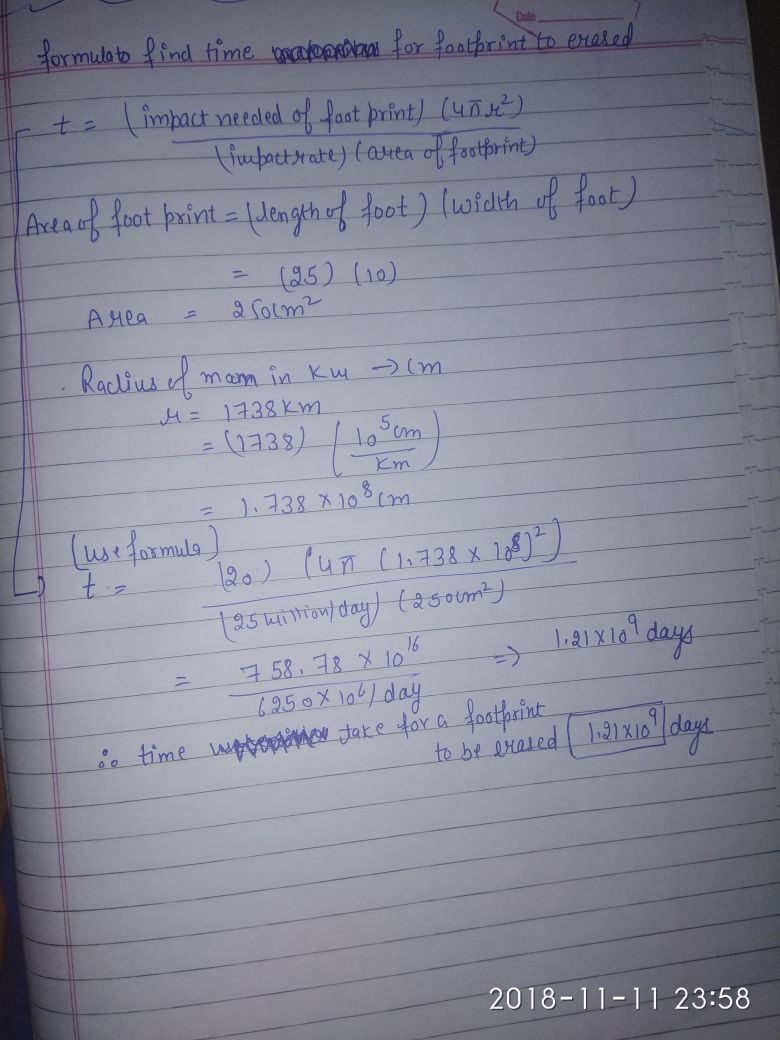 Date
formula to find time for footprint to erased
t = (impact needed of foot print) (4πr²)
(impact rate) (area of footprint)
Area of foot print = (length of foot) (width of foot)
= (25) (10)
Area = 250cm²
. Radius of moon in Km → cm
r = 1738 km
= (1738) (10⁵ cm
Km)
= 1.738 × 10⁸ cm
(use formula)
t = (20) (4π (1.738 × 10⁸)²)
(25 million/day) (250cm²)
= 758.78 × 10¹⁶ ⇒ 1.21×10⁹ days
6250×10⁶/day
∴ time take for a footprint
to be erased 1.21×10⁹ days
2018-11-11 23:58